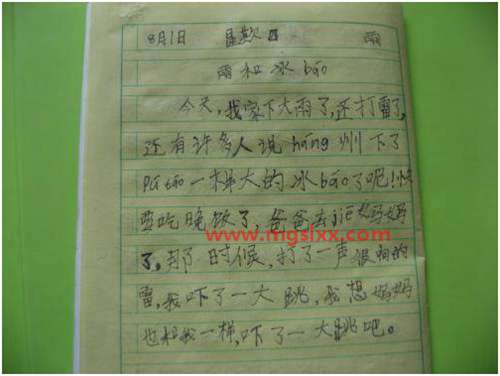 8月1日 星期日 雨
雨和冰báo
今天,我家下大雨了,还打雷了,
还有许多人说háng州下了
Pú táo一样大的冰báo了呢!快
要吃晚饭了,爸爸去jiē妈妈
www.mgslxx.com
了,那时候,打了一声很响的
雷,我吓了一大跳,我想妈妈
也和我一样,吓了一大跳吧。